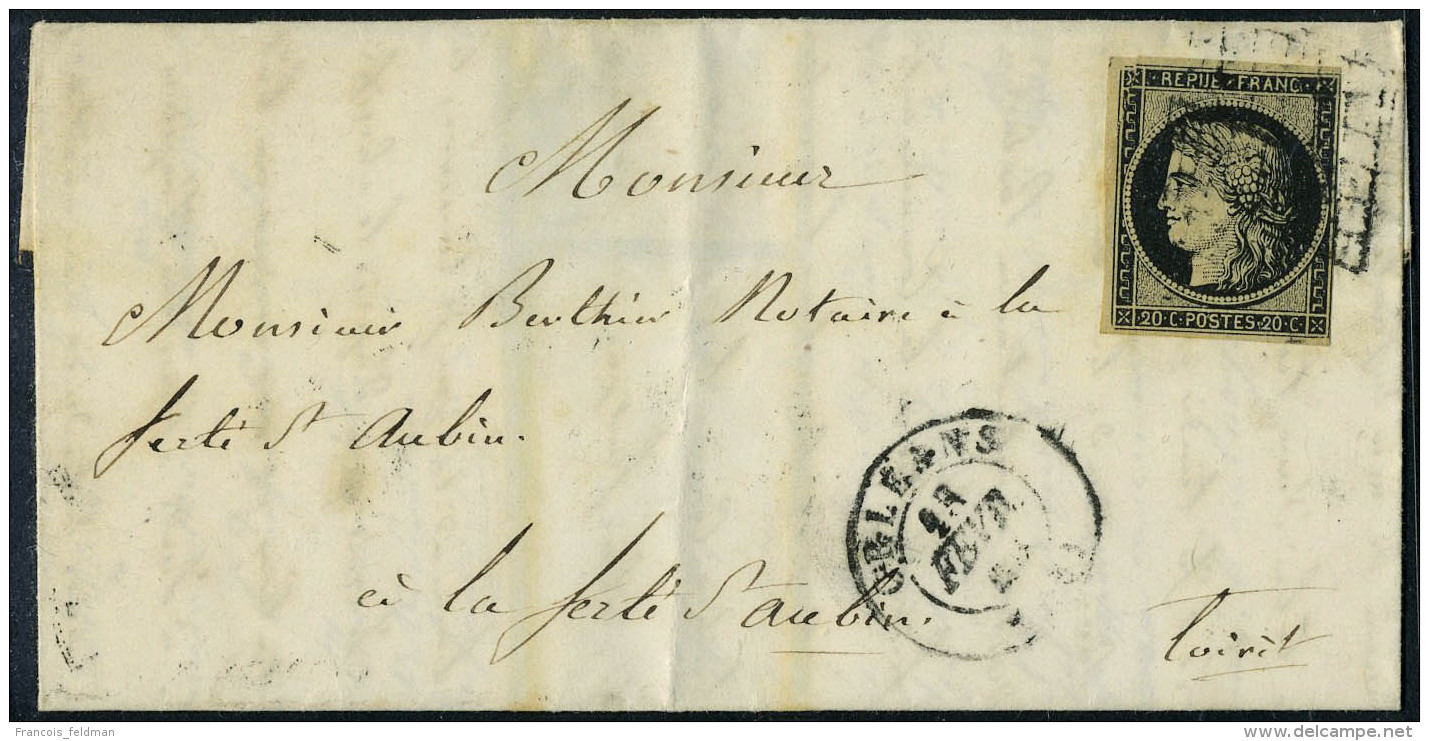 REPUB · FRANC
20 · C · POSTES · 20 · C
Monsieur
Monsieur Berthier Notaire à la
ferté St Aubin.
à la ferté St Aubin.
Loiret
ORLEANS
FEVR
Francois_feldman
www.delcampe.net